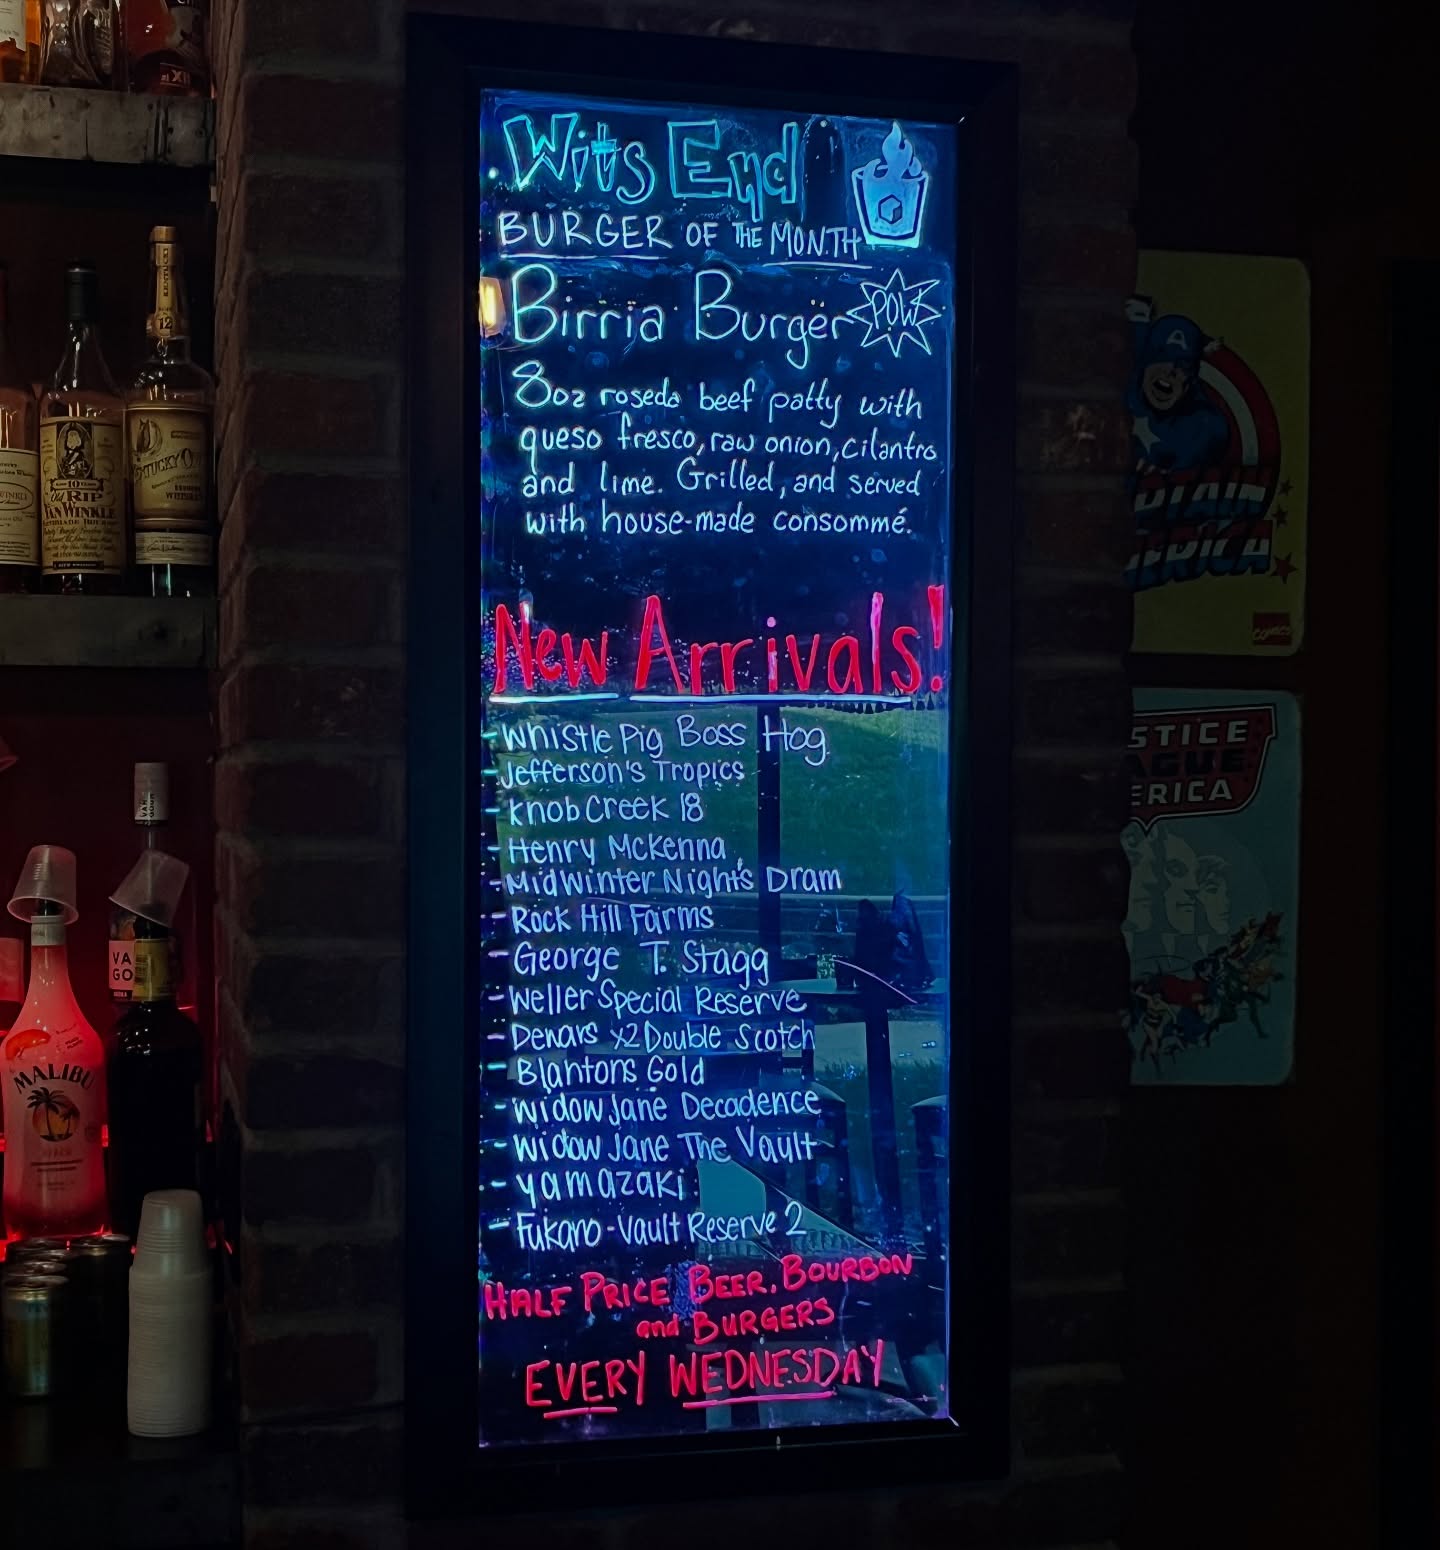 Wits End
BURGER OF THE MONTH
Birria Burger
POW
8oz roseda beef patty with
queso fresco, raw onion, cilantro
and lime. Grilled, and served
with house-made consommé.
New Arrivals!
- Whistle Pig Boss Hog
- Jefferson's Tropics
- Knob Creek 18
- Henry McKenna
- MidWinter Night's Dram
- Rock Hill Farms
- George T. Stagg
- Weller Special Reserve
- Denars x2 Double Scotch
- Blantons Gold
- Widow Jane Decadence
- Widow Jane The Vault
- Yamazaki
- Fukano - Vault Reserve 2
HALF PRICE BEER, BOURBON
and BURGERS
EVERY WEDNESDAY
KENTUCKY
12
10
Old RIP
VAN WINKLE
VA
GO
MALIBU
A
PTAIN
MERICA
COMICS
STICE
AGUE
ERICA